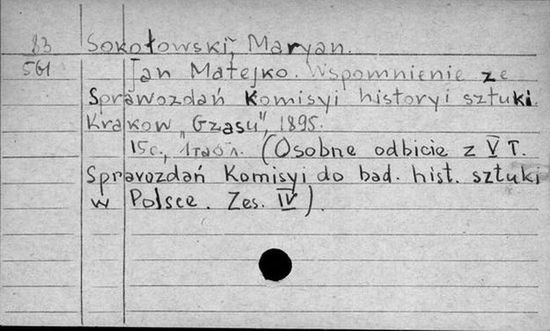 83 Sokołowski, Maryan.
561 Jan Matejko. Wspomnienie ze
Sprawozdań Komisyi historyi sztuki.
Krakow „Gzasu" 1895.
15c., 1табл. (Osobne odbicie z V T.
Spravozdań Komisyi do bad. hist. sztuki
w Polsce. Zes. IV).